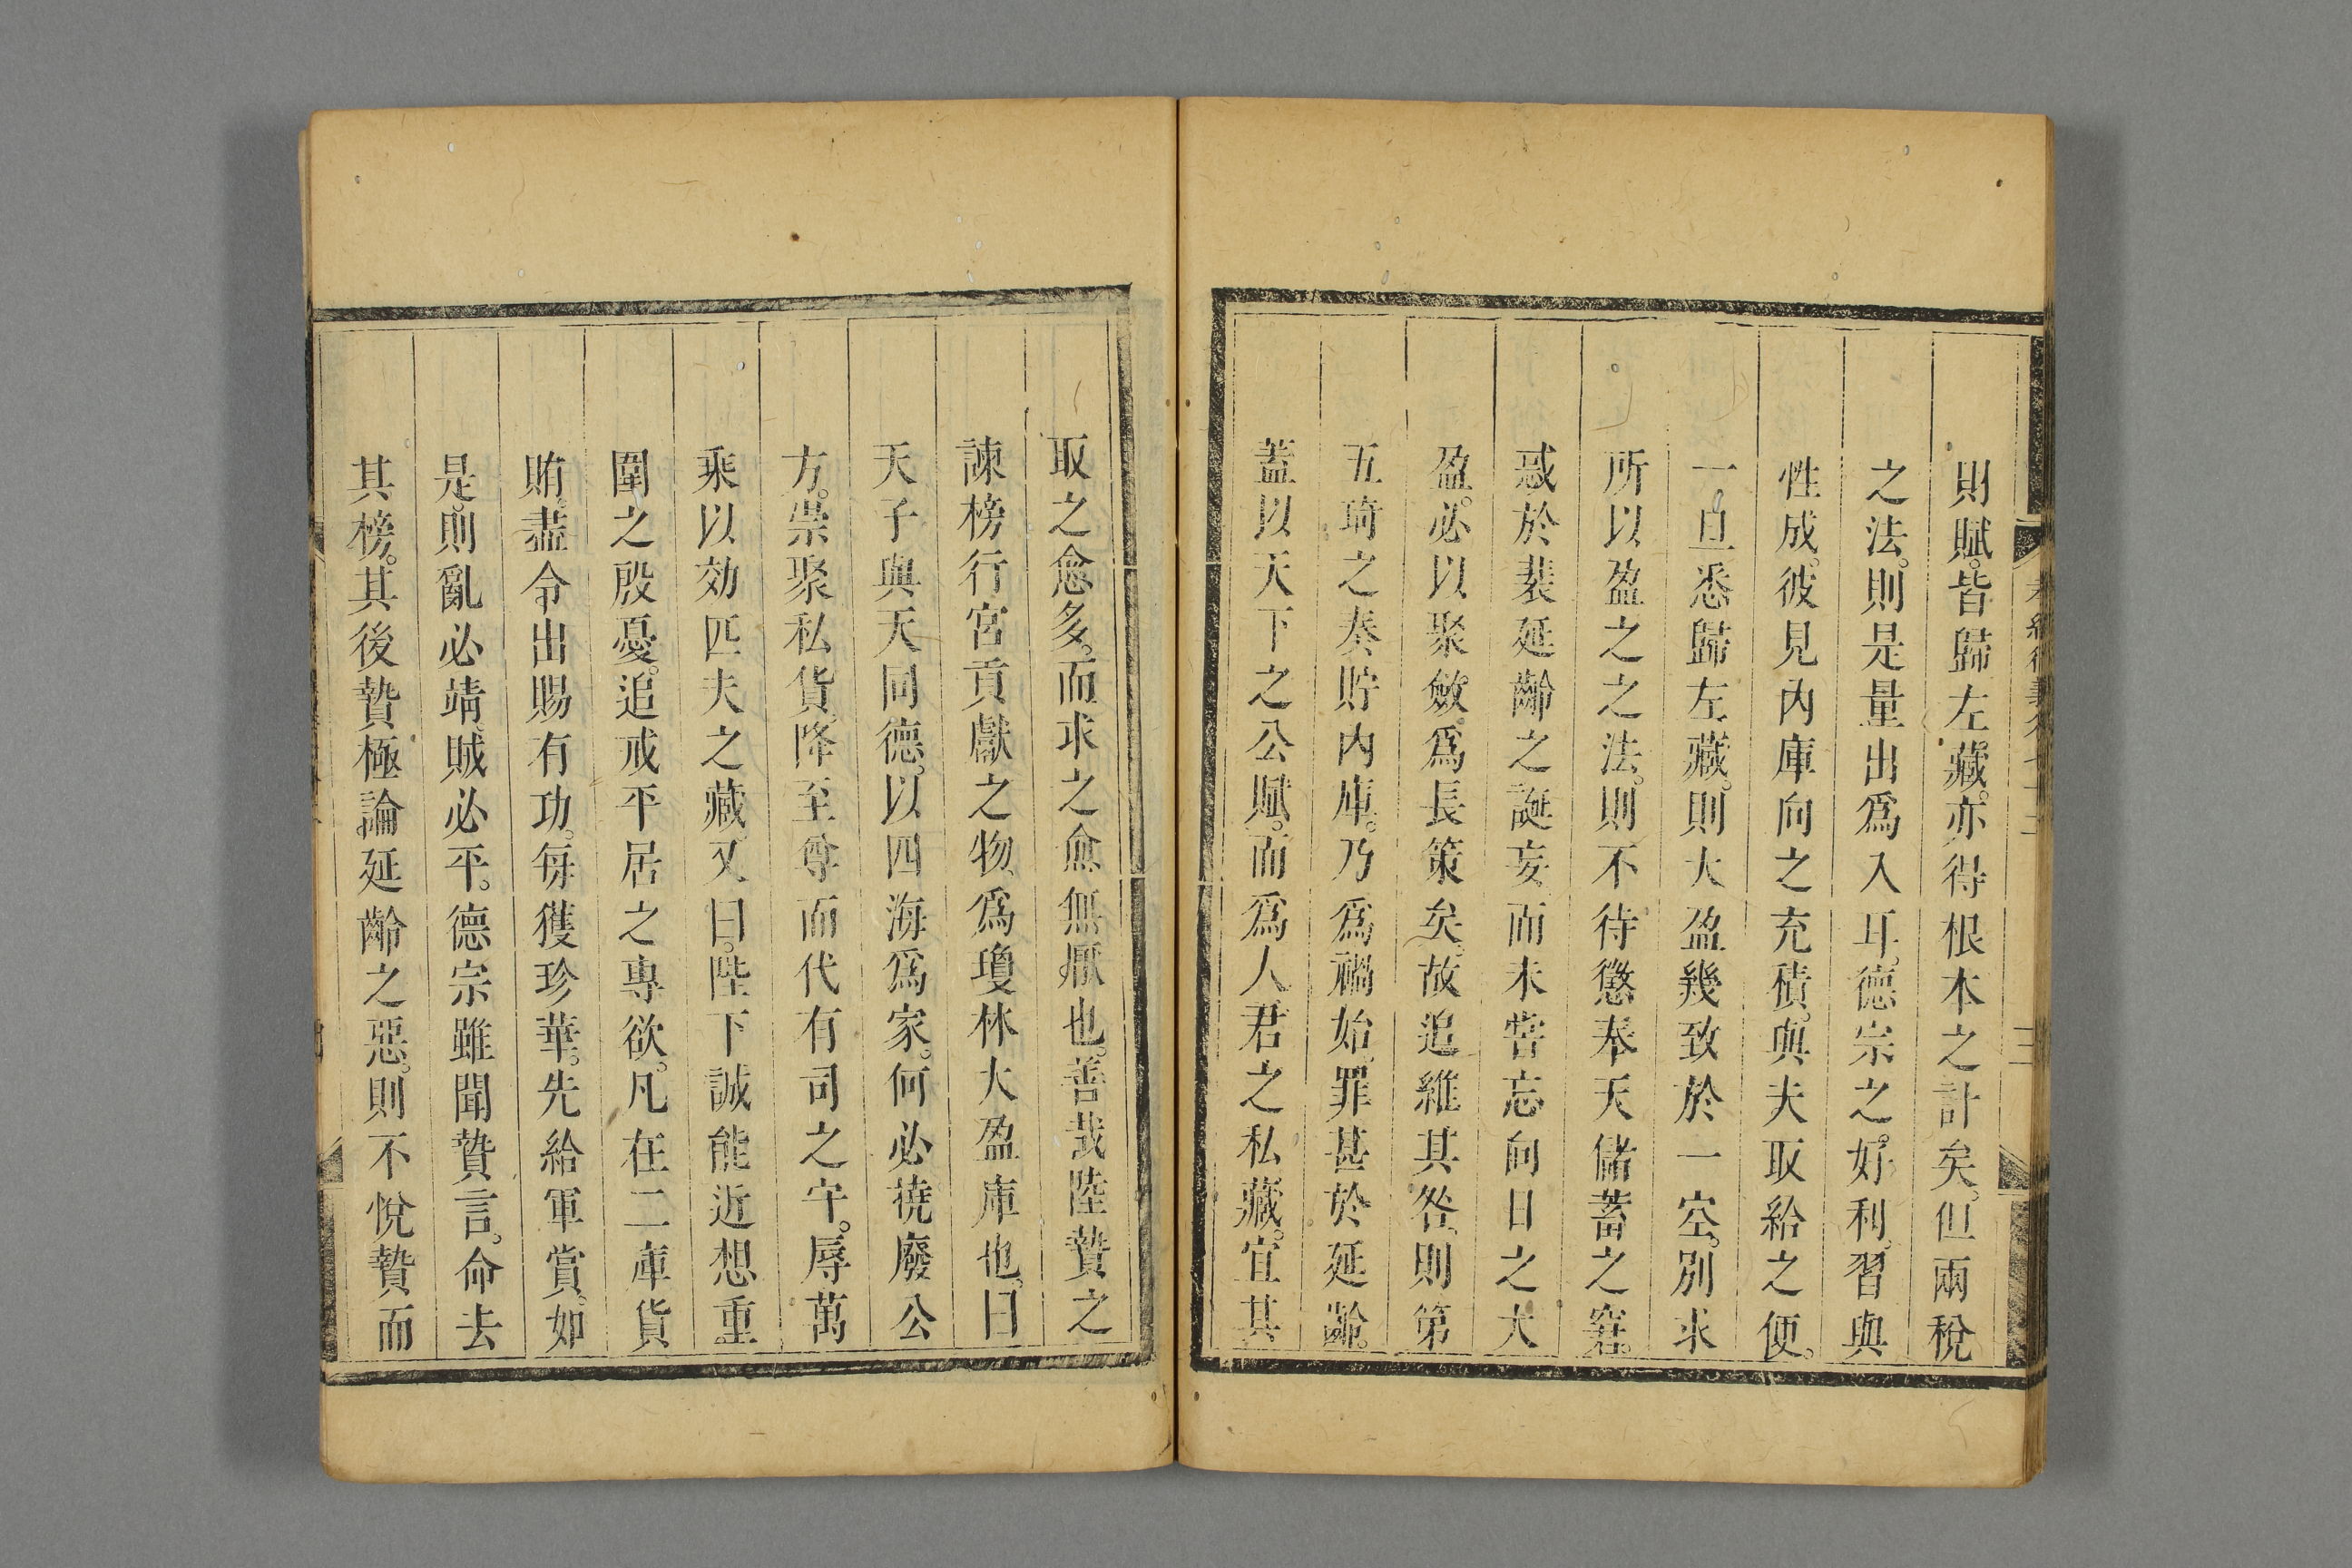 則賦。皆歸左藏。亦得根本之計矣。但兩稅
之法。則是量出爲入耳。德宗之。好利。習與
性成。彼見內庫向之充積。與夫取給之便。
一旦悉歸左藏。則大盈幾致於一空。別求
所以盈之之法。則不待懲奉天儲蓄之窘。
惑於裴延齡之誕妄、而未嘗忘向日之大
盈。必以聚斂。爲長策矣。故追維其咎、則第
五琦之奏、貯內庫。乃爲禍始。罪甚於延齡。
蓋以天下之公賦。而爲人君之私藏。宜其
取之愈多。而求之愈無厭也。善哉陸贄之
諫榜行宮貢獻之物、爲瓊林大盈庫也。曰
天子與天同德。以四海爲家。何必撓廢公
方。崇聚私貨。降至尊而代有司之守。辱萬
乘以効匹夫之藏、又曰。陛下誠能近想重
圍之殷憂。追戒平居之專欲。凡在二庫貨
賄。盡令出賜有功。每獲珍華。先給軍賞。如
是。則亂必靖、賊必平。德宗雖聞贄言。命去
其榜。其後贄極論延齡之惡。則不悅贄而